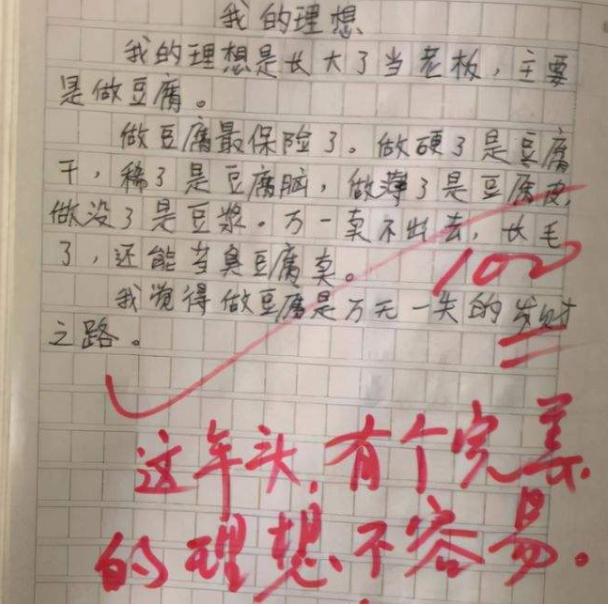 我的理想
我的理想是长大了当老板，主要
是做豆腐。
做豆腐最保险了。做硬了是豆腐
干，稀了是豆腐脑，做薄了是豆腐皮，
做没了是豆浆。万一卖不出去，长毛
了，还能当臭豆腐卖。
100
我觉得做豆腐是万无一失的发财
之路。
这年头，有个完美
的理想不容易。